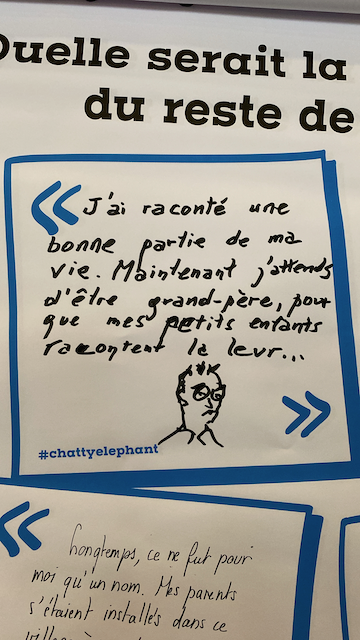 Quelle serait la
du reste de
« J'ai raconté une
bonne partie de ma
vie. Maintenant j'attends
d'être grand-père, pour
que mes petits enfants
racontent la leur...
»
#chattyelephant
« Longtemps, ce ne fut pour
moi qu'un nom. Mes parents
s'étaient installés dans ce